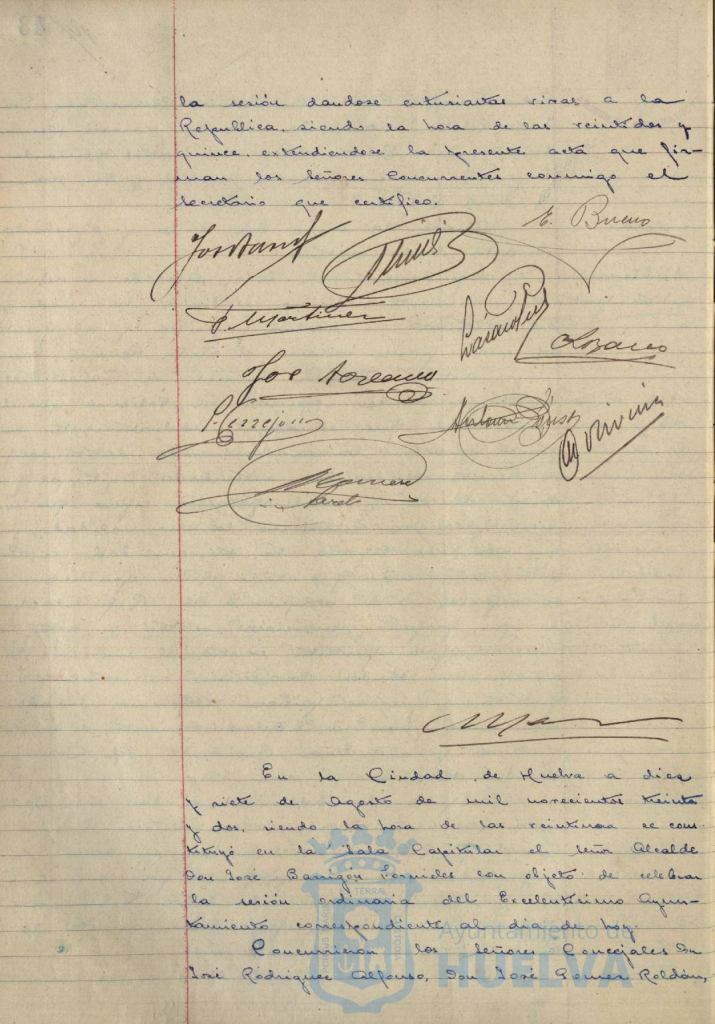 la sesión dandose entusiastas vivas a la
Republica, siendo la hora de las veintidos y
quince, extendiendose la presente acta que fir-
man los Señores Concurrentes conmigo el
Secretario que certifico.
E. Bueno
P. Martinez
Lozano
En la Ciudad de Huelva a diez
y siete de Agosto de mil novecientos treinta
y dos, siendo la hora de las veintiuna se cons-
tituyó en la Sala Capitular el señor Alcalde
Don José Barrigón Fornieles con objeto de celebrar
la sesión ordinaria del Excelentísimo Ayun-
tamiento correspondiente al dia de hoy.
Concurrieron los Señores Concejales Don
José Rodriguez Alfonso, Don José Gomez Roldán,
Ayuntamiento de
HUELVA